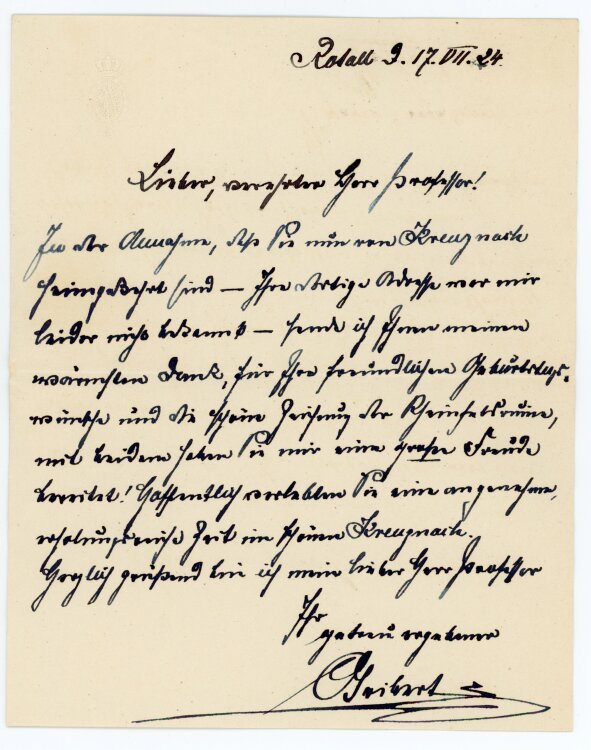 17.VII.24.
Lieber, verehrter Herr Professor!
In der Annahme, daß Sie nun von Kreuznach
heimgekehrt sind — Ihre dortige Adresse war mir
leider nicht bekannt — sende ich Ihnen meinen
wärmsten Dank, für Ihre freundlichen Geburtstags-
wünsche und die schöne Zeichnung der Rheinfelsruine,
mit beidem haben Sie mir eine große Freude
bereitet! Hoffentlich verlebten Sie eine angenehme,
erholungsreiche Zeit im schönen Kreuznach.
Herzlich grüßend bin ich mein lieber Herr Professor
Ihr
getreu ergebener